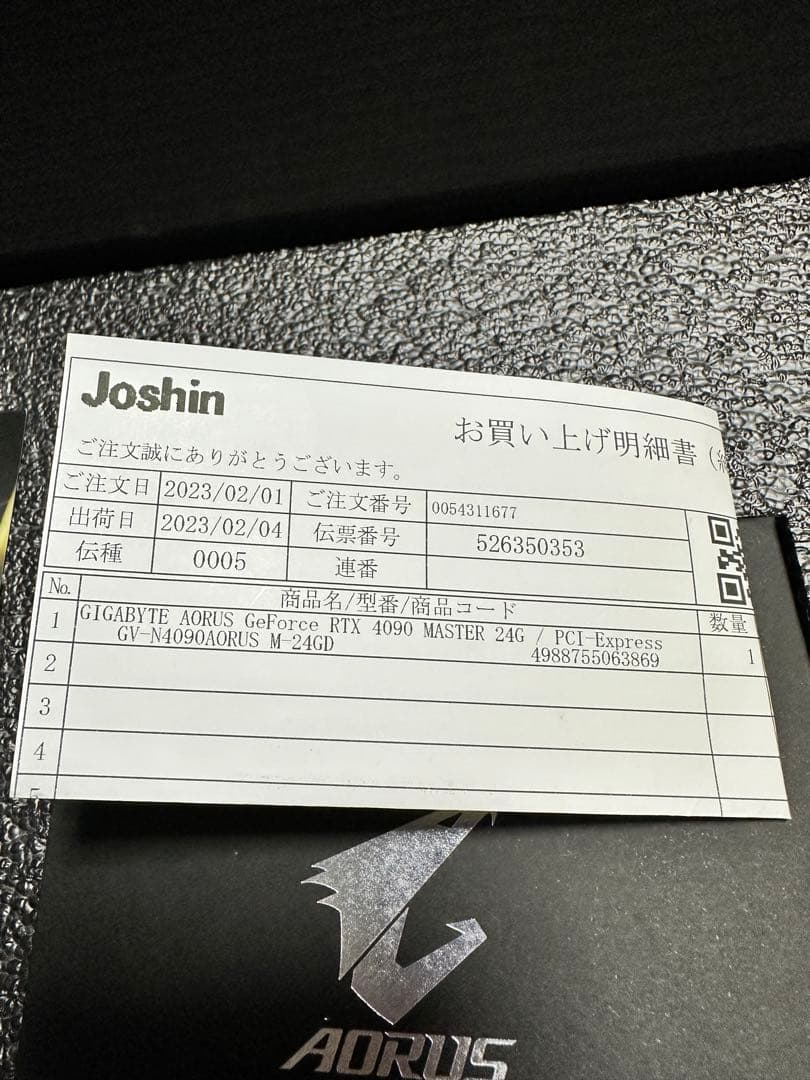 Joshin
お買い上げ明細書（
ご注文誠にありがとうございます。
ご注文日 2023/02/01 ご注文番号 0054311677
出荷日 2023/02/04 伝票番号 526350353
伝種 0005 連番
No. 商品名/型番/商品コード 数量
1 GIGABYTE AORUS GeForce RTX 4090 MASTER 24G / PCI-Express
GV-N4090AORUS M-24GD 4988755063869 1
2
3
4
5
AORUS